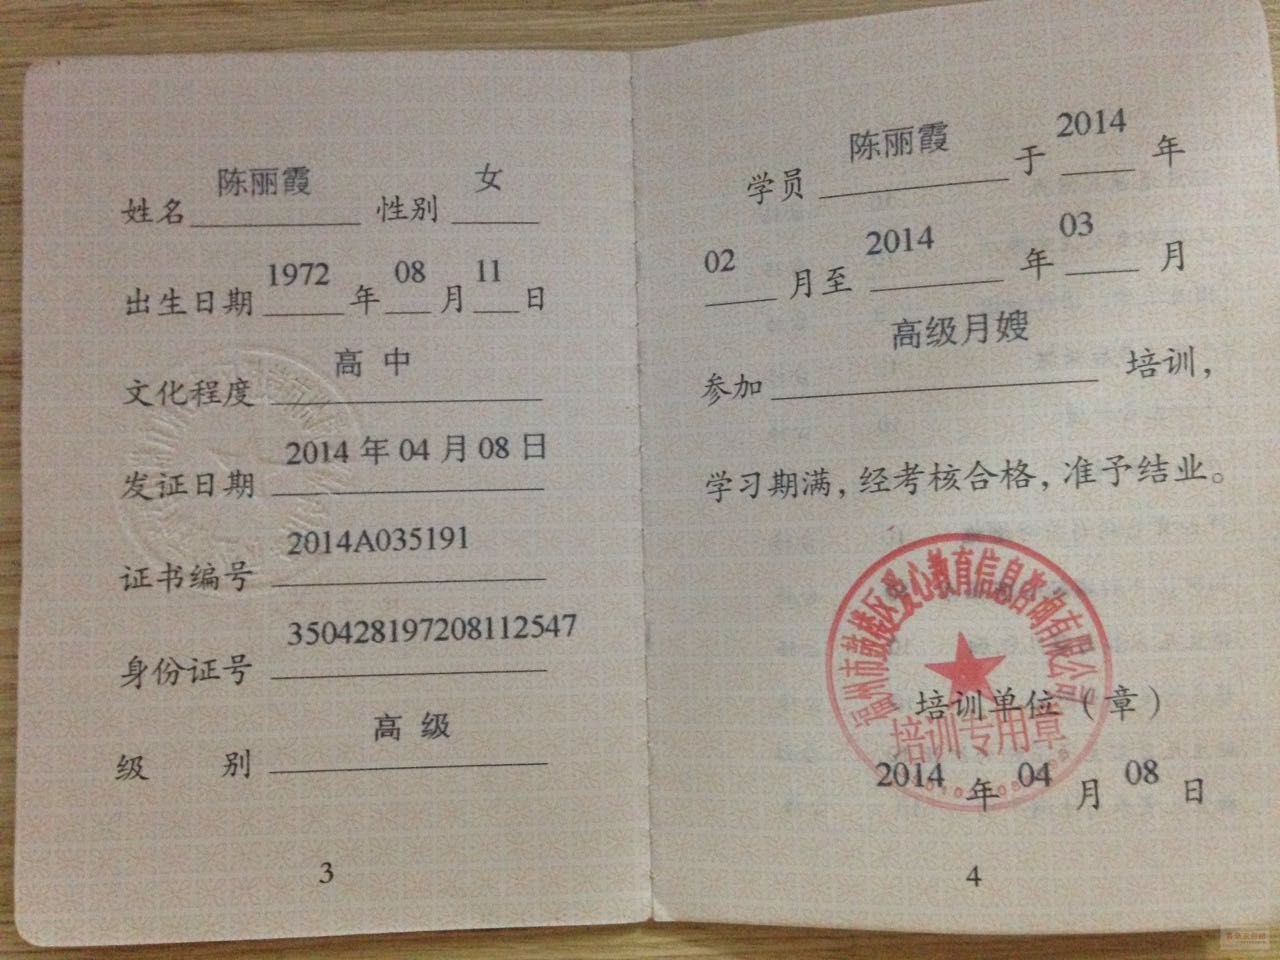 姓名 陈丽霞 性别 女
出生日期 1972 年 08 月 11 日
文化程度 高中
发证日期 2014 年 04 月 08 日
证书编号 2014A035191
身份证号 350428197208112547
级 别 高级
3
学员 陈丽霞 于 2014 年
02 月至 2014 年 03 月
参加 高级月嫂 培训，
学习期满，经考核合格，准予结业。
州市鼓楼区爱心教育信息咨询有限公司
培训单位（章）
培训专用章
2014 年 04 月 08 日
4